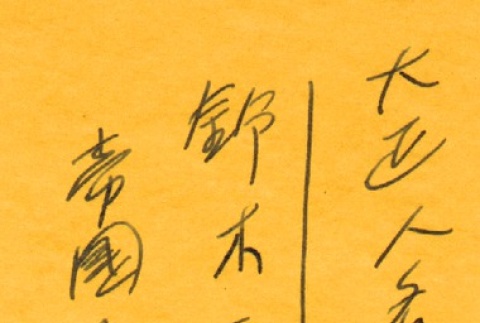 大正人名
鈴木
帝國